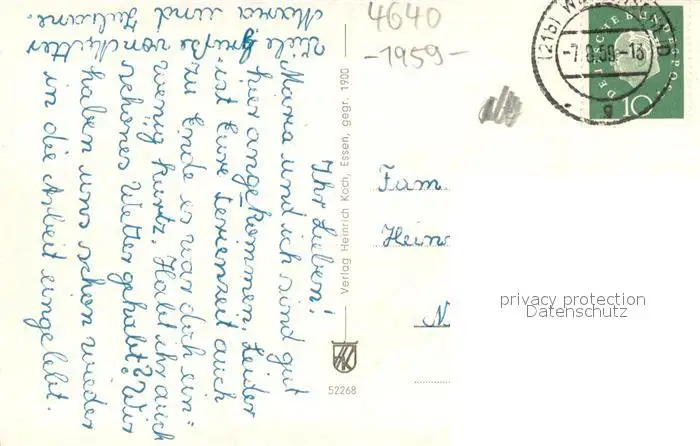 Ihr Lieben!
Maria und ich sind gut
hier angekommen. Leider
ist Eure Ferienzeit auch
zu Ende es war doch ein-
wenig kurtz. Habt ihr auch
schönes Wetter gehabt? Wir
haben uns schon wieder
in die Arbeit eingelebt.
Viele Grüße von Mutter
Maria und
4640
-1959-
(21b) W
-7.9.59-13
g
DEUTSCHE BUNDESPOST
10
Verlag Heinrich Koch, Essen, gegr. 1900
HK
52268
Fam
Hein
N
privacy protection
Datenschutz